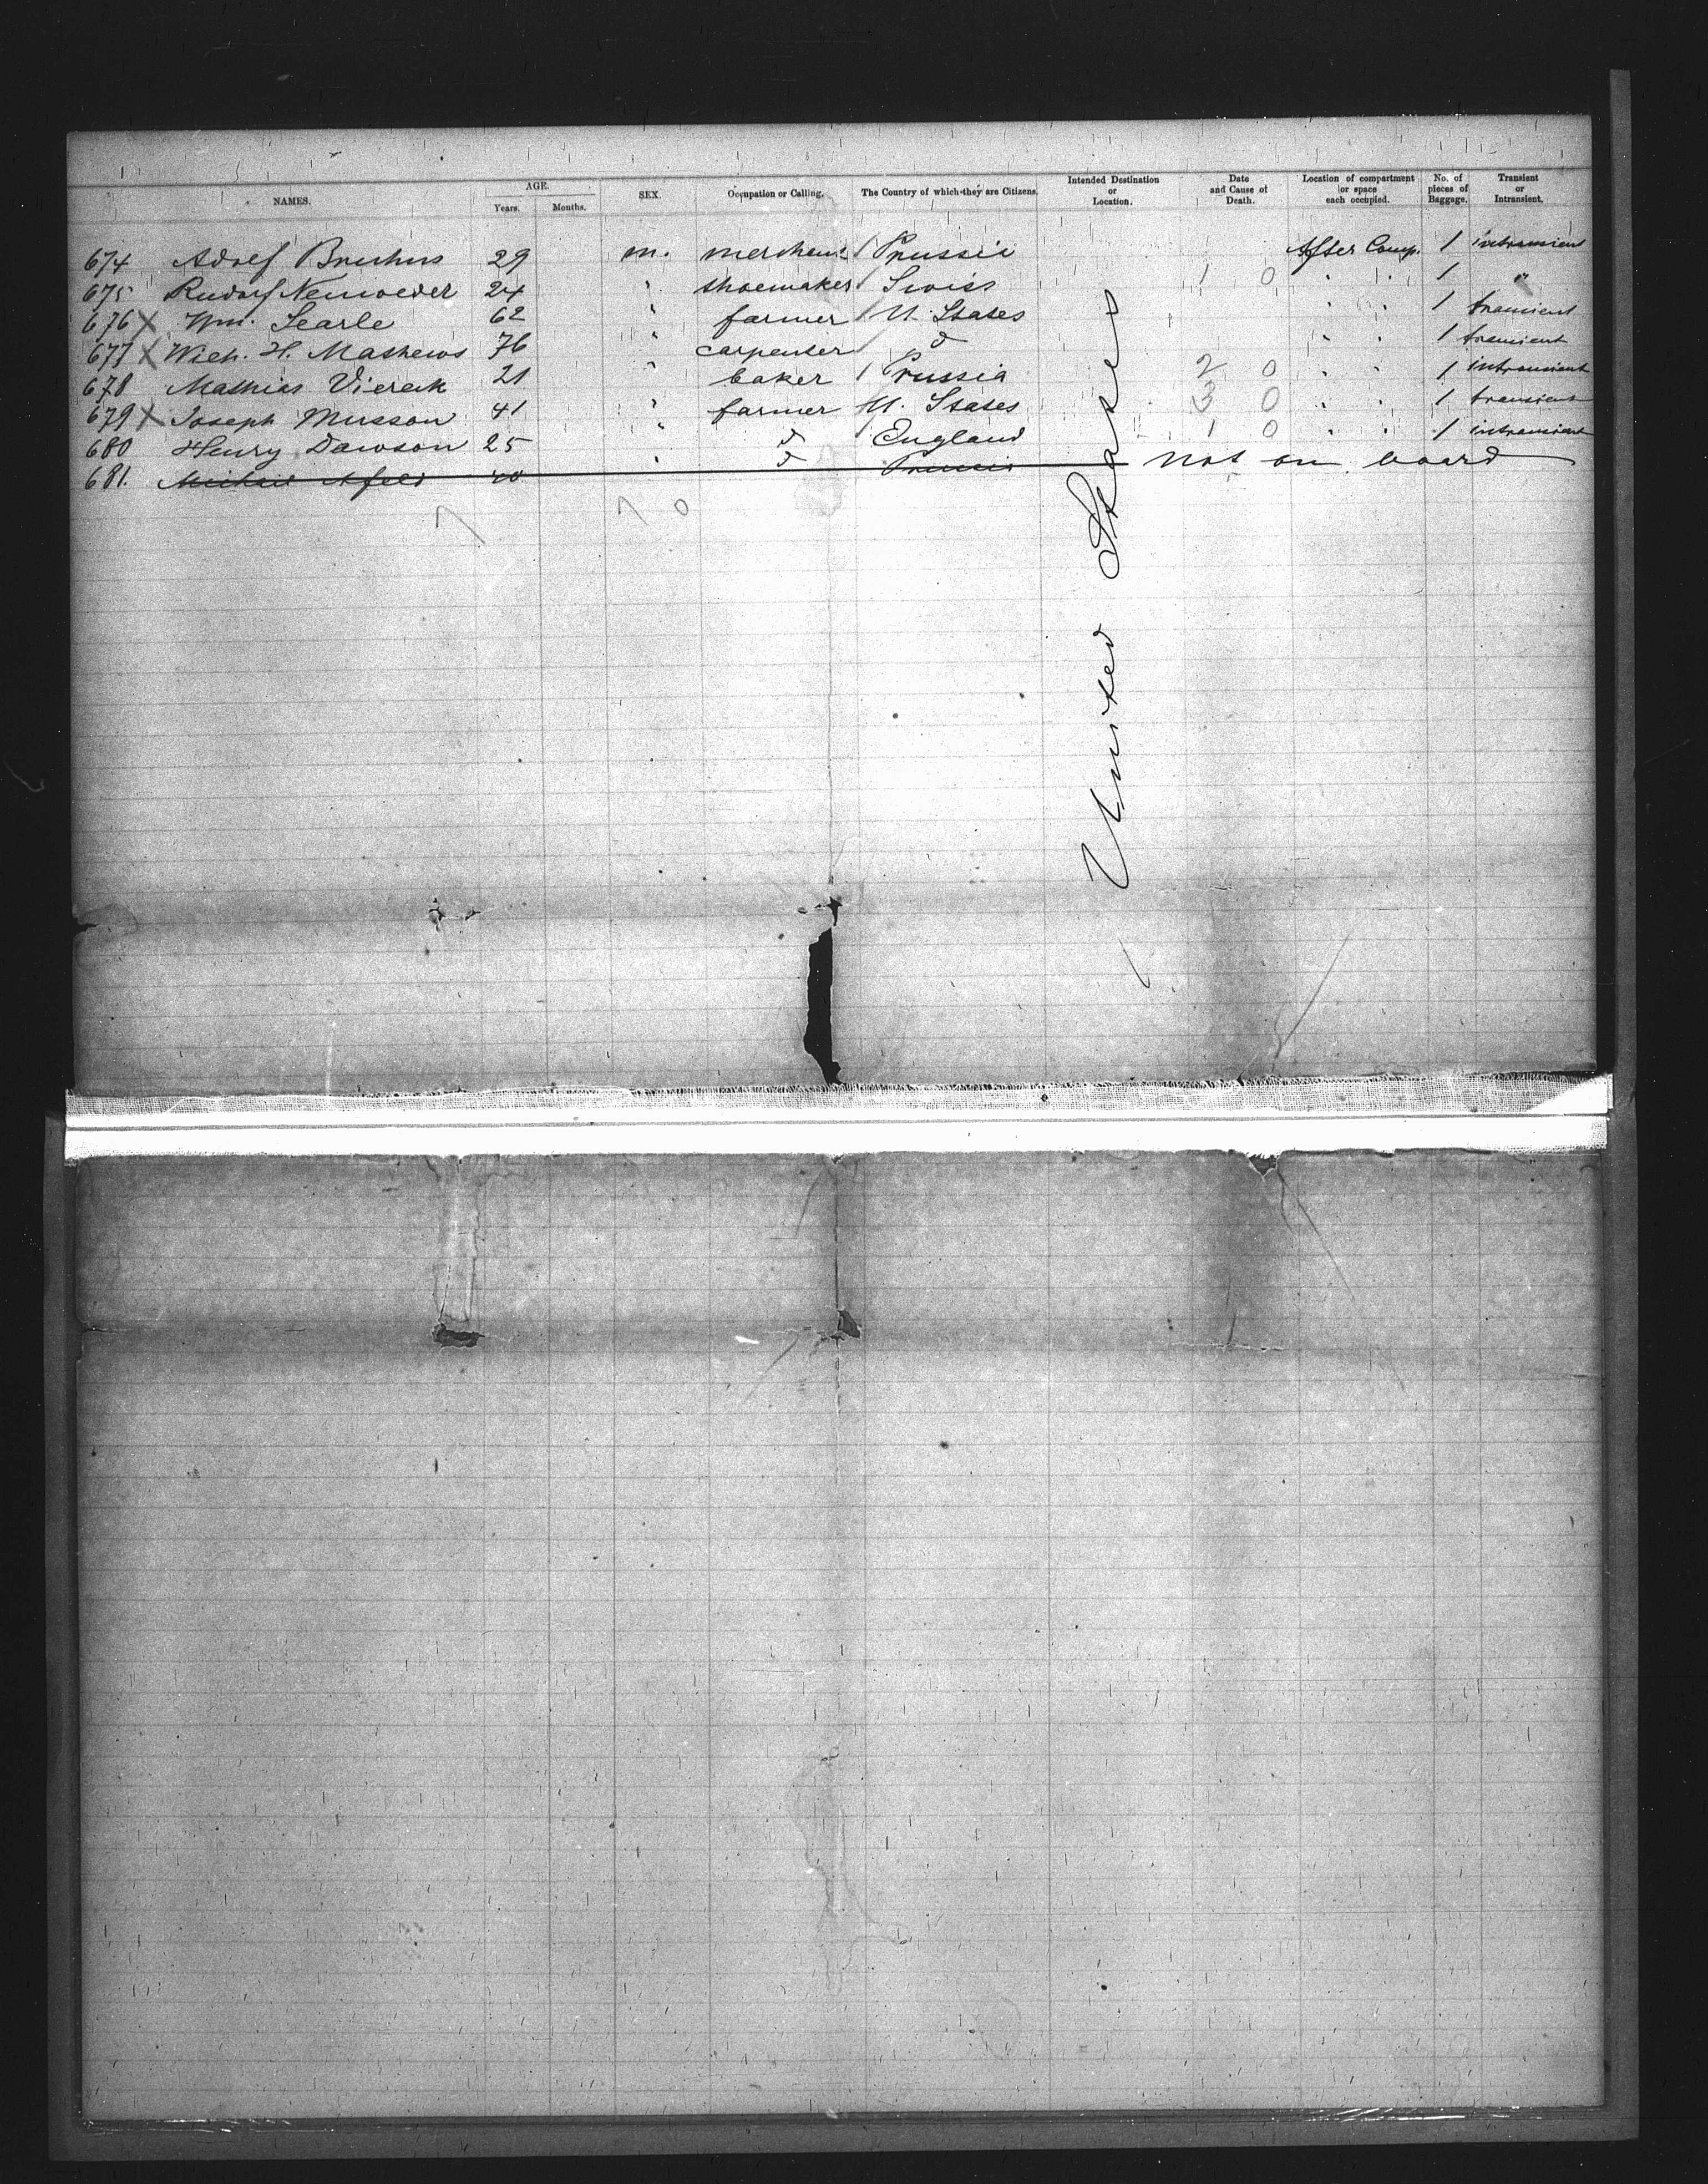 NAMES. AGE. Years. Months. SEX. Occupation or Calling. The Country of which they are Citizens. Intended Destination or Location. Date and Cause of Death. Location of compartment or space each occupied. No. of pieces of Baggage. Transient or Intransient.
674 Adolf Bruhns 29 m. merchant 1 Prussia After Comp. 1 intransient
675 Rudolf 24 " shoemaker 1 Swiss 1 0 " " 1 "
676 X Wm. Searle 62 " farmer U. States " " 1 transient
677 X H. Mathews 76 " carpenter d " " 1 transient
678 Mathias Viereck 21 " baker 1 Prussia 2 0 " " 1 intransient
679 X Joseph Musson 41 " farmer U. States 3 0 " " 1 transient
680 Henry Dawson 25 " d England 1 0 " " 1 intransient
681. 40 " d Prussia not on board
7 7 0
United States